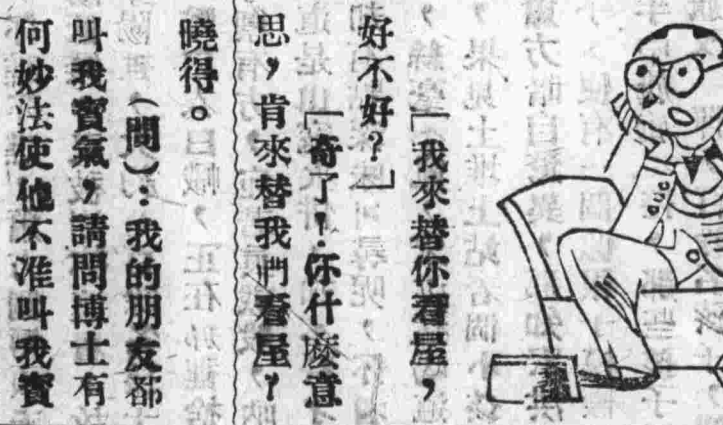 「我來替你看屋，
好不好？」
「奇了！你什麼意
思，肯來替我們看屋？
曉得。
（問）：我的朋友都
叫我寶氣，請問博士有
何妙法使他不准叫我寶